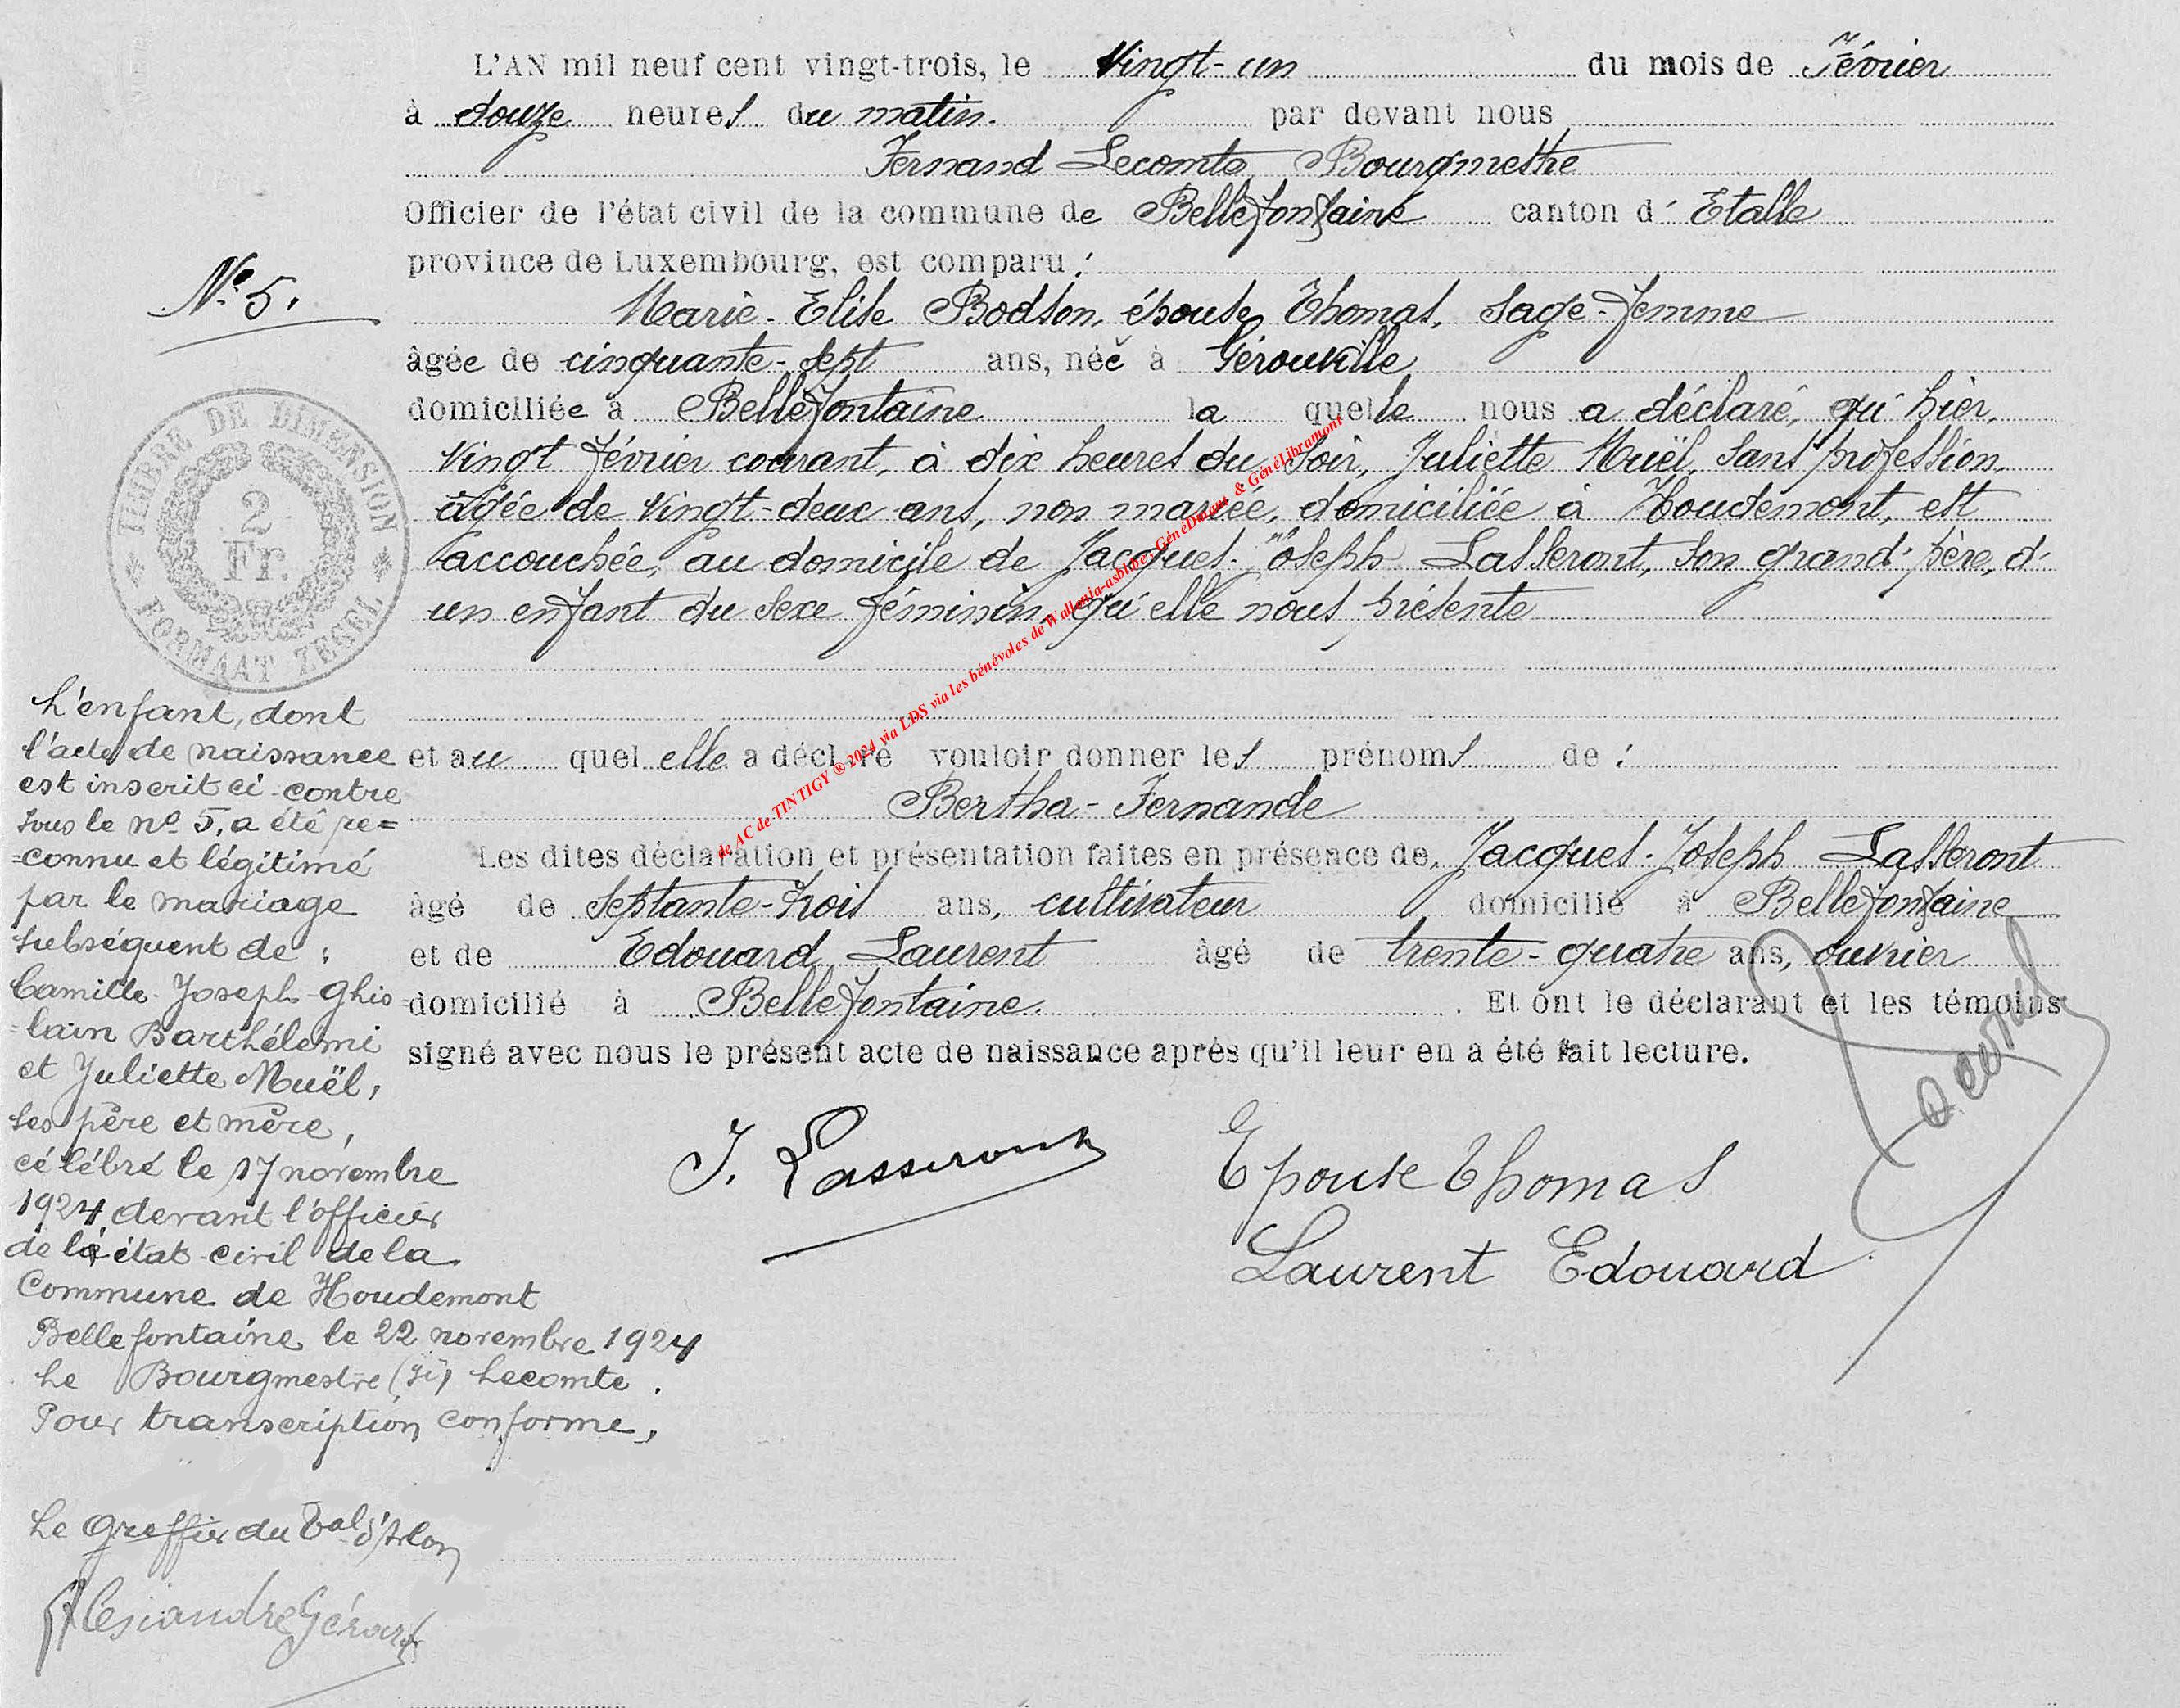 L'AN mil neuf cent vingt-trois, le Vingt-un du mois de Février
à douze heures du matin. par devant nous
Fernand Lecomte, Bourgmestre
Officier de l'état civil de la commune de Bellefontaine canton d' Etalle
province de Luxembourg, est comparu :
N° 5.
Marie-Elise Bodson, épouse Thomas, Sage-femme
âgée de cinquante-sept ans, née à Gérouville
domiciliée à Bellefontaine la quelle nous a déclaré, qu'hier,
vingt février courant, à dix heures du soir, Juliette Muël, sans profession,
âgée de vingt-deux ans, non mariée, domiciliée à Houdemont, est
accouchée, au domicile de Jacques-Joseph Lasseront, son grand'père, d'
un enfant du sexe féminin, qu'elle nous présente
et au quel elle a déclaré vouloir donner les prénoms de :
Bertha-Fernande
Les dites déclaration et présentation faites en présence de Jacques-Joseph Lasseront
âgé de septante-trois ans, cultivateur domicilié à Bellefontaine
et de Edouard Laurent âgé de trente-quatre ans, ouvrier
domicilié à Bellefontaine. Et ont le déclarant et les témoins
signé avec nous le présent acte de naissance après qu'il leur en a été fait lecture.
J. Lasseront
Epouse Thomas
Laurent Edouard
Lecomte
TIMBRE DE DIMENSION
2
Fr.
FORMAAT ZEGEL
L'enfant, dont
l'acte de naissance
est inscrit ci-contre
sous le n° 5, a été re=
=connu et légitimé
par le mariage
subséquent de :
Camille-Joseph-Ghis
=lain Barthélemi
et Juliette Muël,
ses père et mère,
célébré le 17 novembre
1924 devant l'officier
de l'état-civil de la
Commune de Houdemont
Bellefontaine le 22 novembre 1924
Le Bourgmestre (sé) Lecomte.
Pour transcription conforme,
Le Greffier du Tal d'Arlon
Alexandre Gérard
de AC de TINTIGY ® 2024 via LDS via les bénévoles de Wallonia-asbl.be, GénéDinant & GénéLibramont